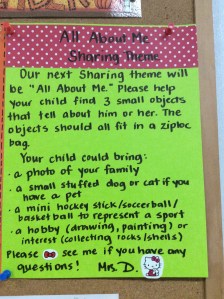 All About Me
Sharing Theme
Our next Sharing theme will
be "All About Me." Please help
your child find 3 small objects
that tell about him or her. The
objects should all fit in a ziploc
bag.
Your child could bring:
• a photo of your family
• a small stuffed dog or cat if you
have a pet
• a mini hockey stick/soccerball/
basketball to represent a sport
• a hobby (drawing, painting) or
interest (collecting rocks/shells)
Please see me if you have any
questions! Mrs. D.